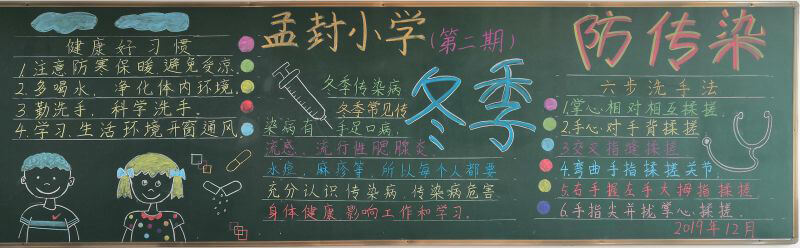 健康好习惯
1.注意防寒保暖,避免受凉.
2.多喝水,净化体内环境.
3.勤洗手,科学洗手.
4.学习、生活环境开窗通风
孟封小学(第二期)
冬季
冬季传染病
冬季常见传
染病有:手足口病.
流感、流行性腮腺炎.
水痘、麻疹等,所以每个人都要
充分认识传染病,传染病危害
身体健康,影响工作和学习.
防传染
六步洗手法
1.掌心相对相互揉搓.
2.手心对手背揉搓.
3.交叉指缝揉搓
4.弯曲手指揉搓关节.
5.右手握左手大拇指揉搓
6.手指尖并拢掌心揉搓.
2019年12月